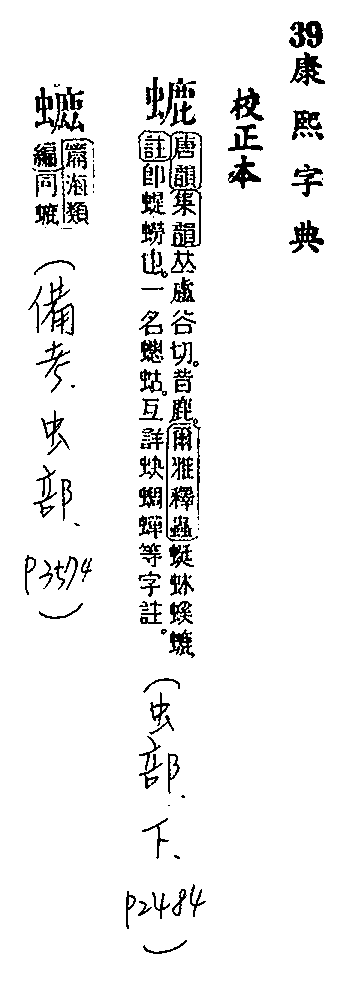 39康熙字典
校正本
螰
唐韻集韻𠀤盧谷切。音鹿。爾雅釋蟲蜓蚞螇螰,
註卽蝭蟧也。一名蟪蛄。互詳蚗蜩蟬等字註。
(虫部.下.p2484)
篇海類
編同螰
(備考.虫部.p3574)